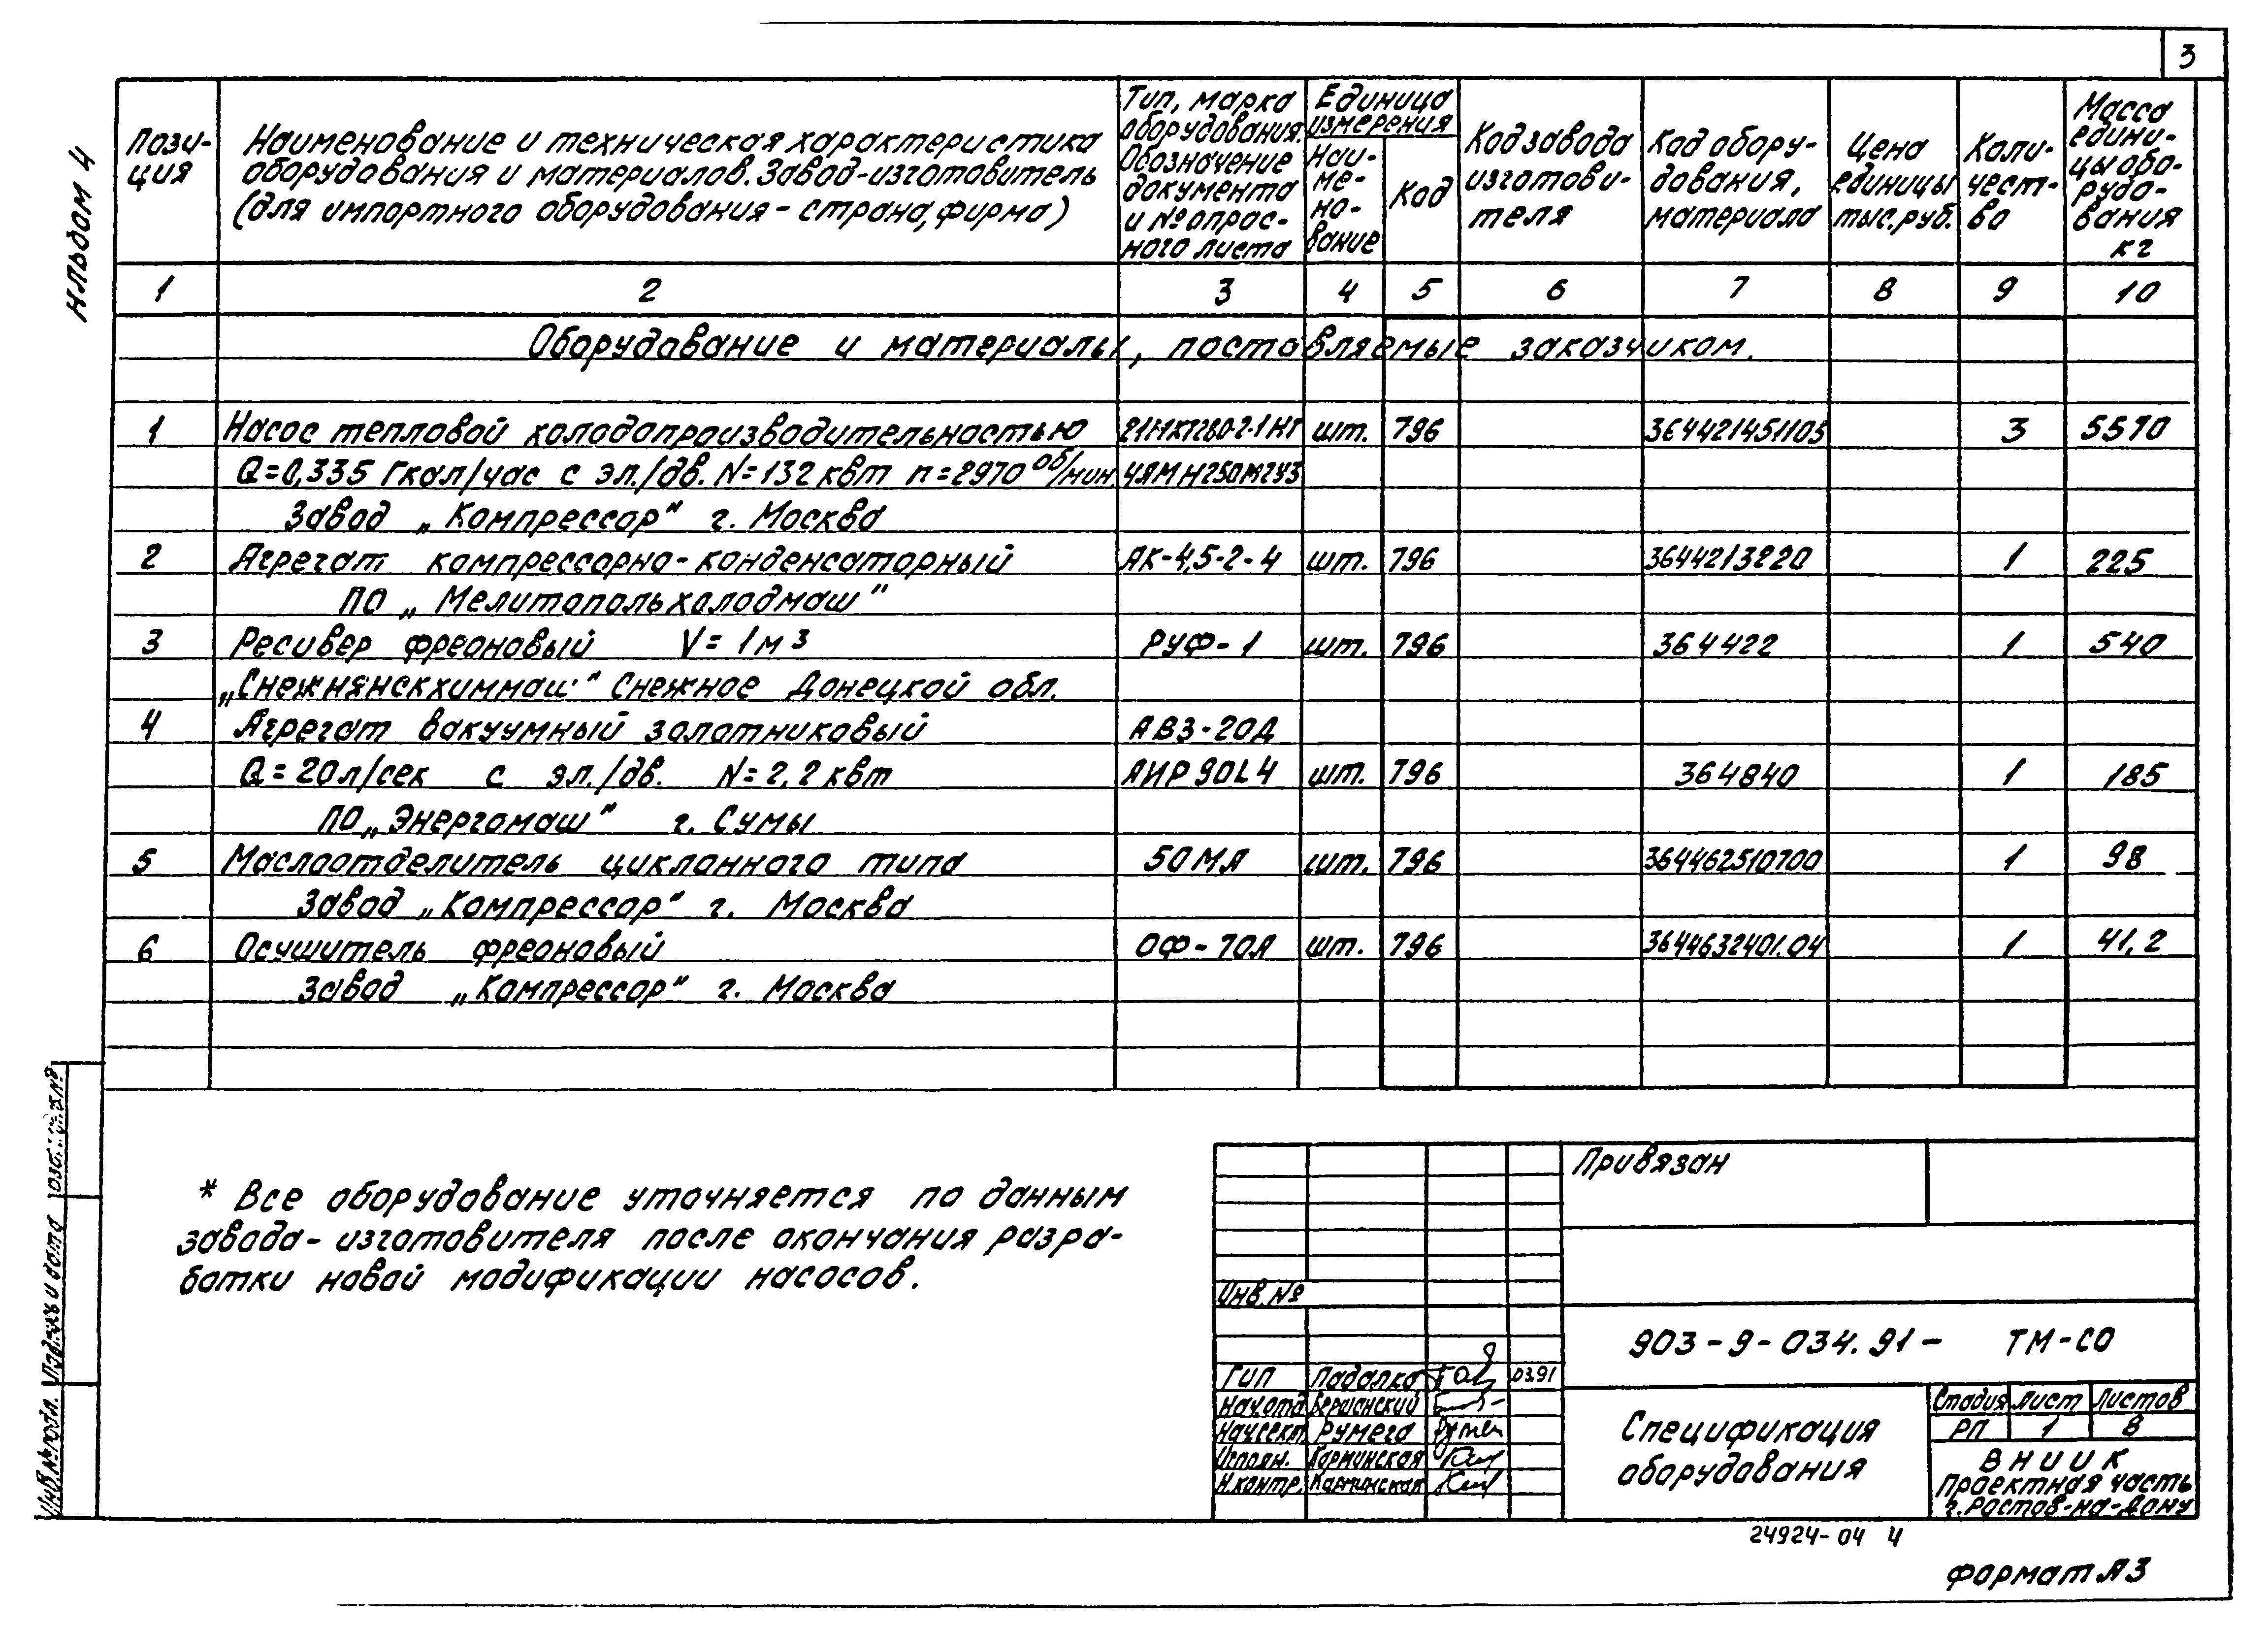 3
Альбом 4
Пози-
ция
Наименование и техническая характеристика
оборудования и материалов. Завод-изготовитель
(для импортного оборудования - страна, фирма)
Тип, марка
оборудования.
Обозначение
документа
и № опрос-
ного листа
Единица
измерения
Наи-
ме-
но-
вание
Код
Код завода
изготови-
теля
Код обору-
дования,
материала
Цена
единицы
тыс. руб.
Коли-
чест-
во
Масса
едини-
цы обо-
рудо-
вания
кг
1 2 3 4 5 6 7 8 9 10
Оборудование и материалы, поставляемые заказчиком.
1 Насос тепловой холодопроизводительностью шт. 796 364421451105 3 5570
Q=0,335 Гкал/час с эл./дв. N=132 квт n=2970 об/мин 4АМН250М2У3
Завод „Компрессор" г. Москва
2 Агрегат компрессорно-конденсаторный АК-4,5-2-4 шт. 796 3644213220 1 225
ПО „Мелитопольхолодмаш"
3 Ресивер фреоновый V=1м³ РУФ-1 шт. 796 364422 1 540
„Снежнянскхиммаш" Снежное Донецкой обл.
4 Агрегат вакуумный золотниковый АВЗ-20Д
Q=20л/сек с эл./дв. N=2,2 квт АИР90L4 шт. 796 364840 1 185
ПО „Энергомаш" г. Сумы
5 Маслоотделитель циклонного типа 50МА шт. 796 364462510700 1 98
Завод „Компрессор" г. Москва
6 Осушитель фреоновый ОФ-70А шт. 796 3644632401.04 1 41,2
Завод „Компрессор" г. Москва
* Все оборудование уточняется по данным
завода-изготовителя после окончания разра-
ботки новой модификации насосов.
Привязан
Инв. №
903-9-034.91- ТМ-СО
ГИП Падалко 03.91
Нач.отд.
Нач.сект. Румега
Исполн. Карминская
Н.контр. Карминская
Спецификация
оборудования
Стадия Лист Листов
РП 1 8
ВНИИК
Проектная часть
г. Ростов-на-Дону
Инв. № подл.
Подпись и дата
24924-04 4
Формат А3